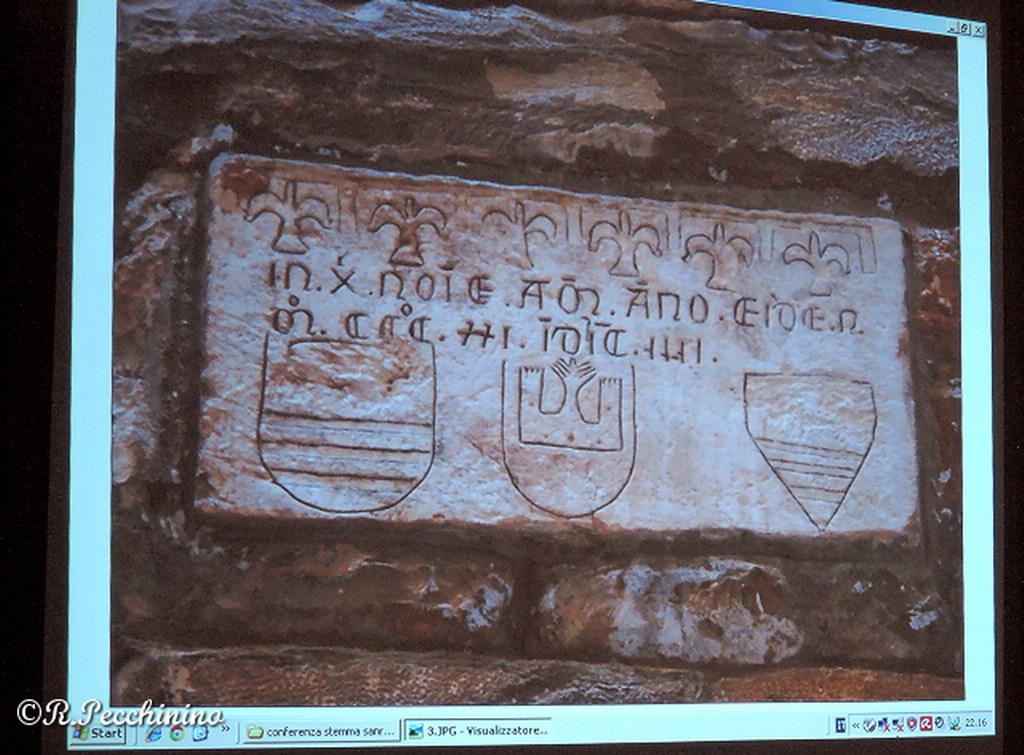 IN. X̄. NOIE. AM̄. ĀNO. EIDĒ. N.
M̊. CC̊C. III. ĪDIC̄. IIII.
©R.Pecchinino
Start
conferenza stemma sanr...
3.JPG - Visualizzatore...
22.16